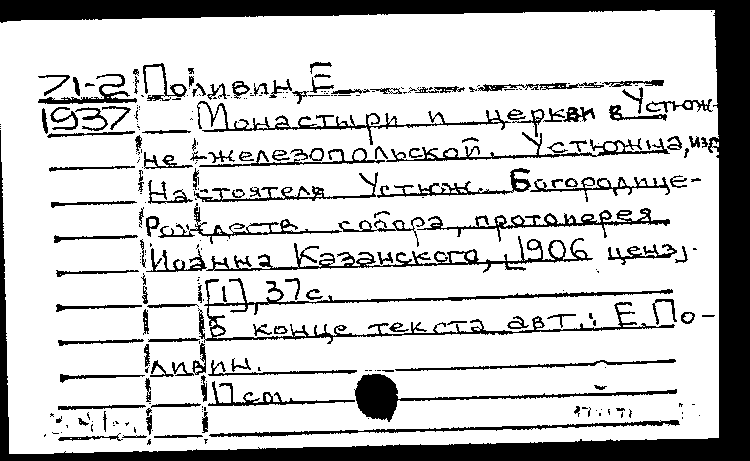 71-2 Поливин, Е
1937 Монастыри и церкви в Устюж-
не-железопольской. Устюжна, изд.
Настоятеля Устюж. Богородице-
Рождеств. собора, протоиерея
Иоанна Казанского, [1906 ценз].
[1], 37с.
В конце текста авт.: Е. По-
ливин.
17 cm.